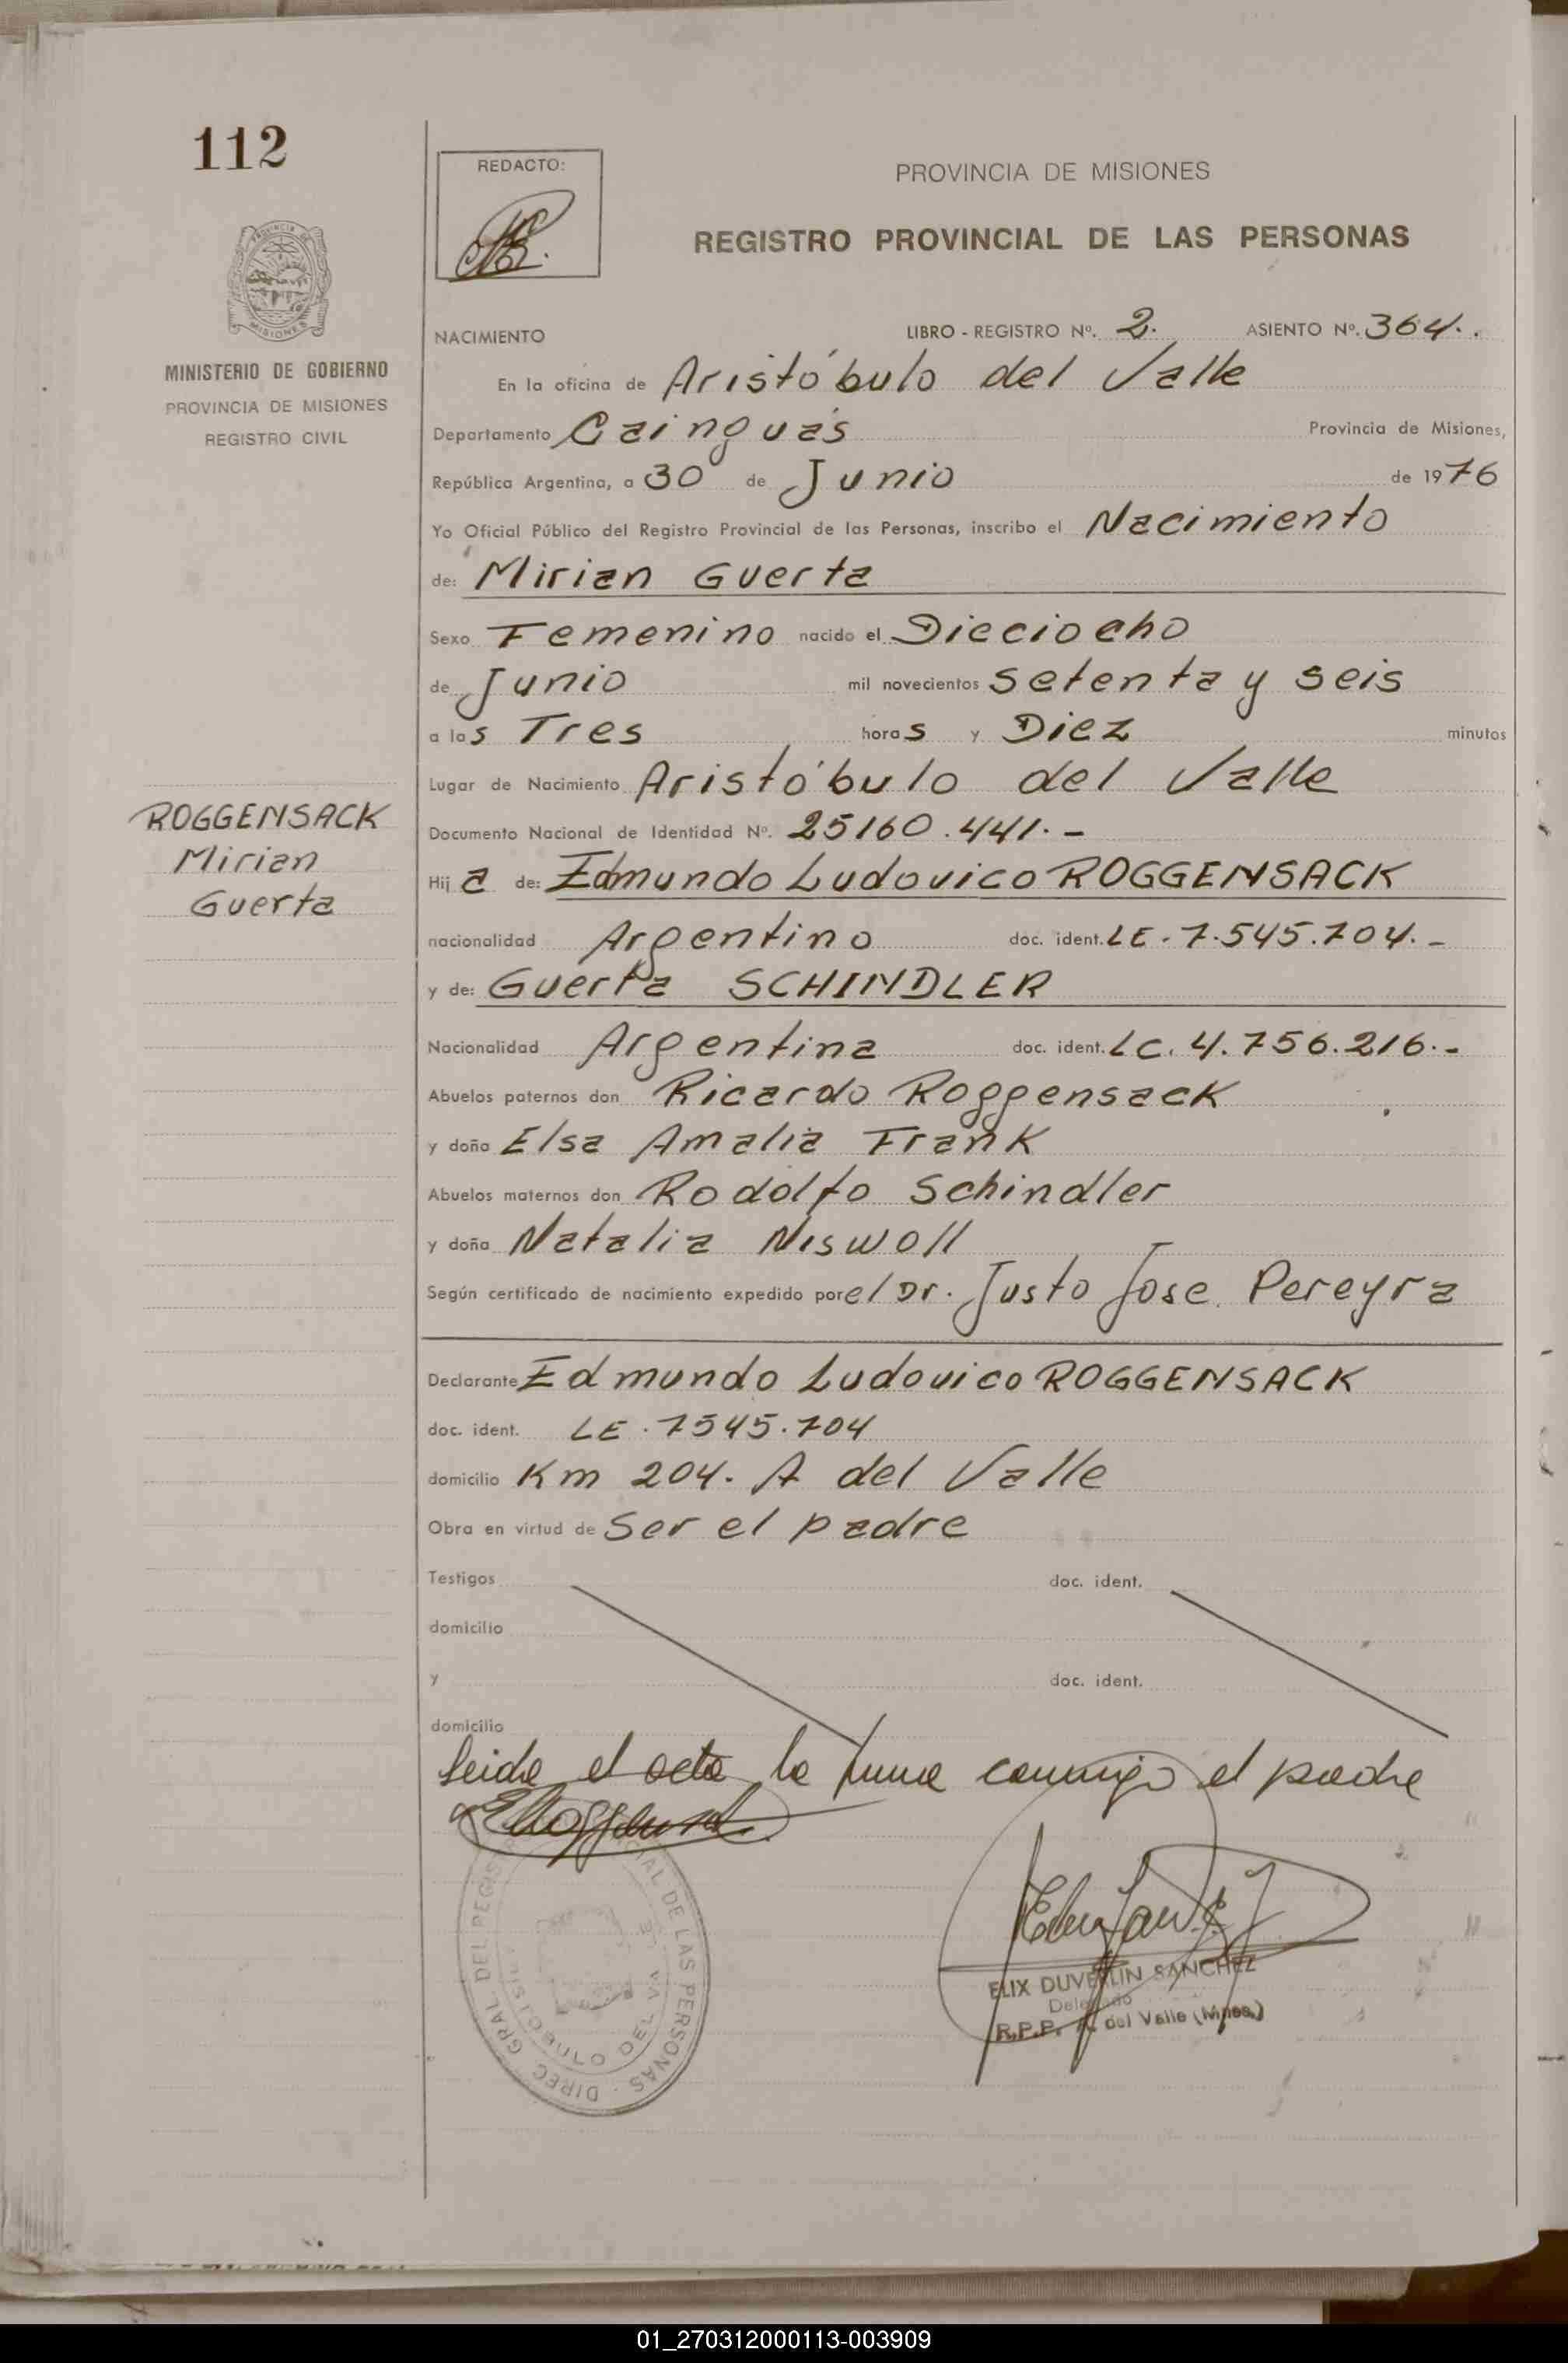 112
REDACTO:
PROVINCIA DE MISIONES
REGISTRO PROVINCIAL DE LAS PERSONAS
PROVINCIA DE
MISIONES
MINISTERIO DE GOBIERNO
PROVINCIA DE MISIONES
REGISTRO CIVIL
NACIMIENTO LIBRO - REGISTRO Nº. 2. ASIENTO Nº. 364.
En la oficina de Aristóbulo del Valle
Departamento Cainguás Provincia de Misiones,
República Argentina, a 30 de Junio de 1976
Yo Oficial Público del Registro Provincial de las Personas, inscribo el Nacimiento
de: Mirian Guerta
Sexo Femenino nacido el Dieciocho
de Junio mil novecientos setenta y seis
a las Tres horas y Diez minutos
Lugar de Nacimiento Aristóbulo del Valle
Documento Nacional de Identidad Nº. 25160.441.-
ROGGENSACK
Mirian
Guerta
Hija de: Edmundo Ludovico ROGGENSACK
nacionalidad Argentino doc. ident. LE-7.545.704.-
y de: Guerta SCHINDLER
Nacionalidad Argentina doc. ident. LC. 4.756.216.-
Abuelos paternos don Ricardo Roggensack
y doña Elsa Amalia Frank
Abuelos maternos don Rodolfo Schindler
y doña Natalia Niswoll
Según certificado de nacimiento expedido por el Dr. Justo Jose Pereyra
Declarante Edmundo Ludovico ROGGENSACK
doc. ident. LE.7545.704
domicilio Km 204. A del Valle
Obra en virtud de Ser el padre
Testigos doc. ident.
domicilio
y doc. ident.
domicilio
Leida el acta la firma conmigo el padre
DIREC. GRAL. DEL REGIS CIAL DE LAS PERSONAS
ELIX DUVERLIN SANCHEZ
Delegado
R.P.P. A. del Valle (Mnes.)
01_270312000113-003909